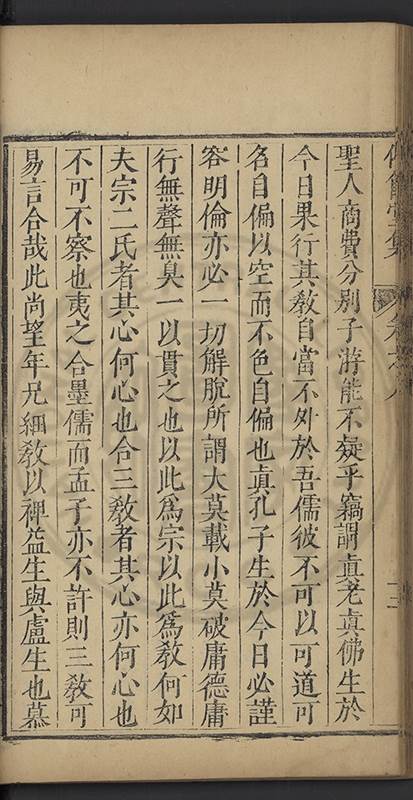 聖人商費分別子游能不疑乎竊謂真老真佛生於
今日果行其教自當不外於吾儒彼不可以可道可
名自偏以空而不色自偏也真孔子生於今日必謹
容明倫亦必一切解脫所謂大莫載小莫破庸德庸
行無聲無臭一以貫之也以此為宗以此為教何如
夫宗二氏者其心何心也合三教者其心亦何心也
不可不察也夷之合墨儒而孟子亦不許則三教可
易言合哉此尚望年兄細教以禆益生與盧生也慕